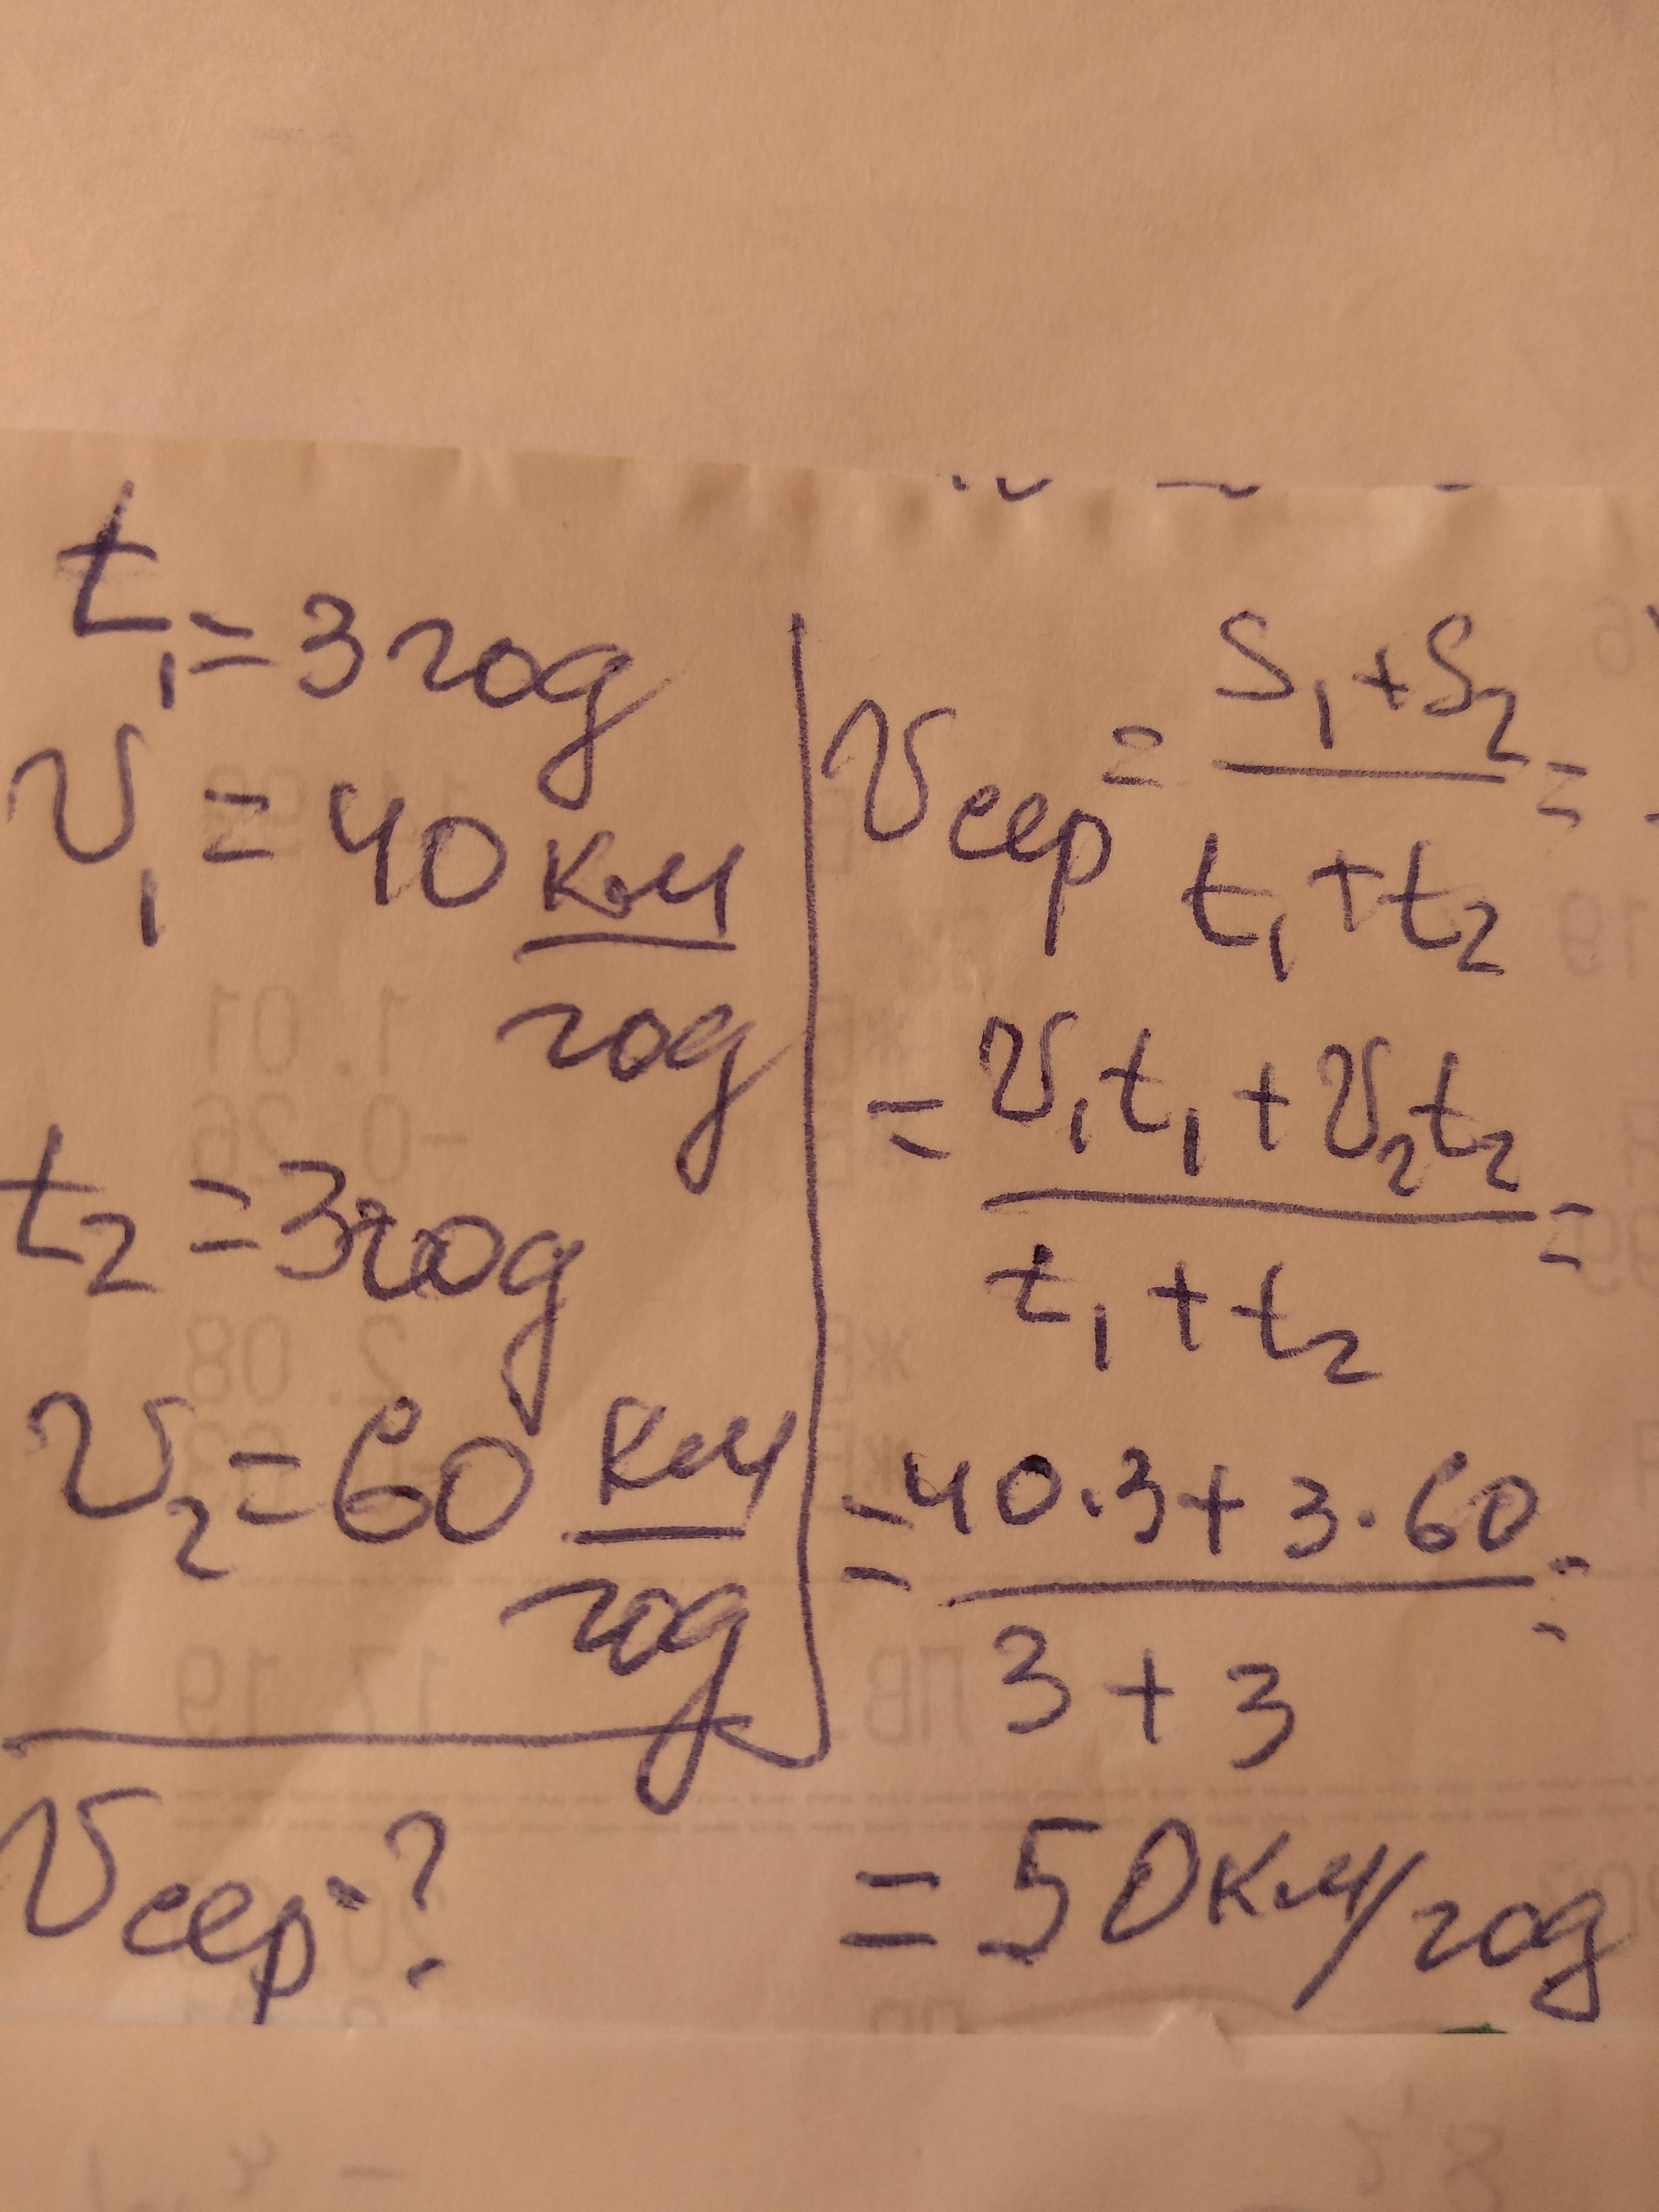 t₁ = 3 год
v₁ = 40 км/год
t₂ = 3 год
v₂ = 60 км/год
vсер - ?
vсер = (S₁ + S₂)/(t₁ + t₂) =
= (v₁t₁ + v₂t₂)/(t₁ + t₂) =
= (40·3 + 3·60)/(3 + 3) =
= 50 км/год